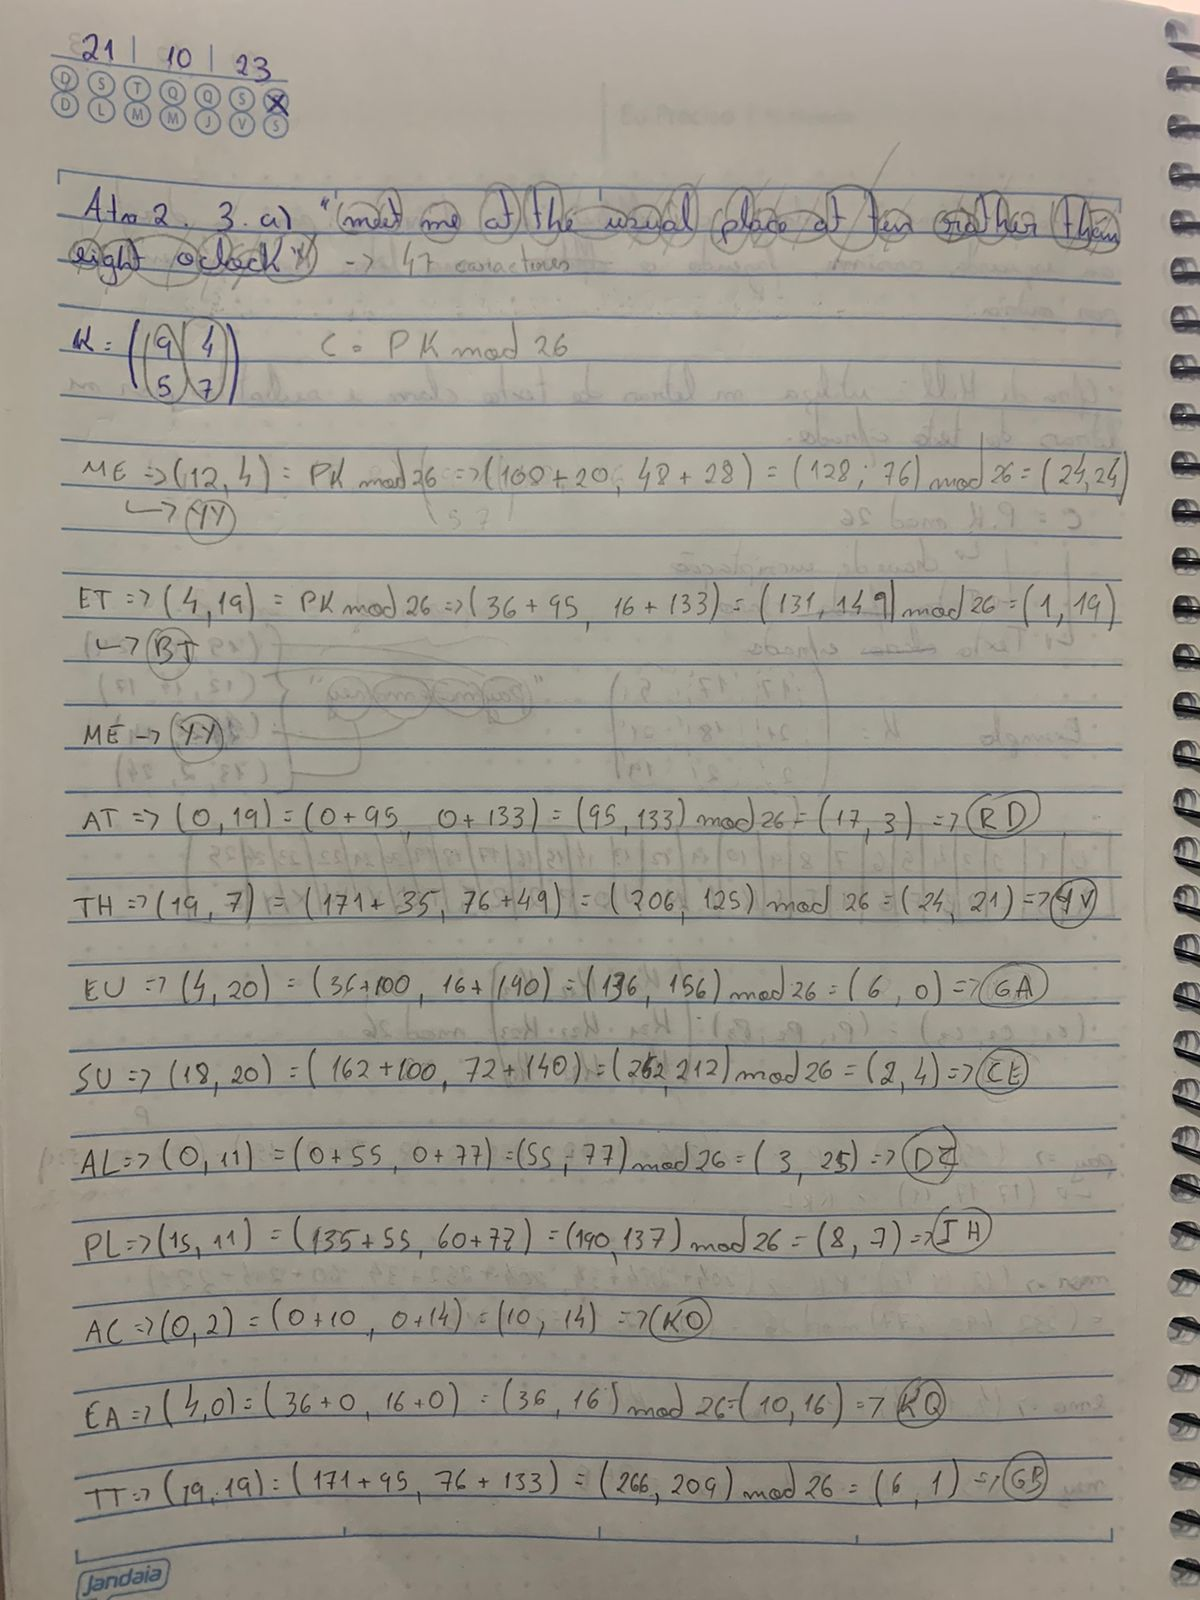 21 | 10 | 23
D S T Q Q S X
D L M M J V S
Atv 2. 3. a) "meet me at the usual place at ten rather than
eight oclock X" -> 47 caracteres
K = (9 4
5 7) C = PK mod 26
ME => (12, 4) = PK mod 26 => (108 + 20, 48 + 28) = (128; 76) mod 26 = (24,24)
↳ YY
ET => (4, 19) = PK mod 26 => (36 + 95, 16 + 133) = (131, 149) mod 26 = (1, 19)
↳ BT
ME -> YY
AT => (0, 19) = (0 + 95, 0 + 133) = (95, 133) mod 26 = (17, 3) => RD
TH => (19, 7) = (171 + 35, 76 + 49) = (206, 125) mod 26 = (24, 21) => YV
EU => (4, 20) = (36+100, 16 + 140) = (136, 156) mod 26 = (6, 0) => GA
SU => (18, 20) = (162 + 100, 72 + 140) = (262, 212) mod 26 = (2, 4) => CE
AL => (0, 11) = (0 + 55, 0 + 77) = (55, 77) mod 26 = (3, 25) => DZ
PL => (15, 11) = (135 + 55, 60 + 77) = (190, 137) mod 26 = (8, 7) => IH
AC => (0, 2) = (0 + 10, 0 + 14) = (10, 14) => KO
EA => (4,0) = (36 + 0, 16 + 0) = (36, 16) mod 26 = (10, 16) => KQ
TT => (19, 19) = (171 + 95, 76 + 133) = (266, 209) mod 26 = (6, 1) => GB
Jandaia